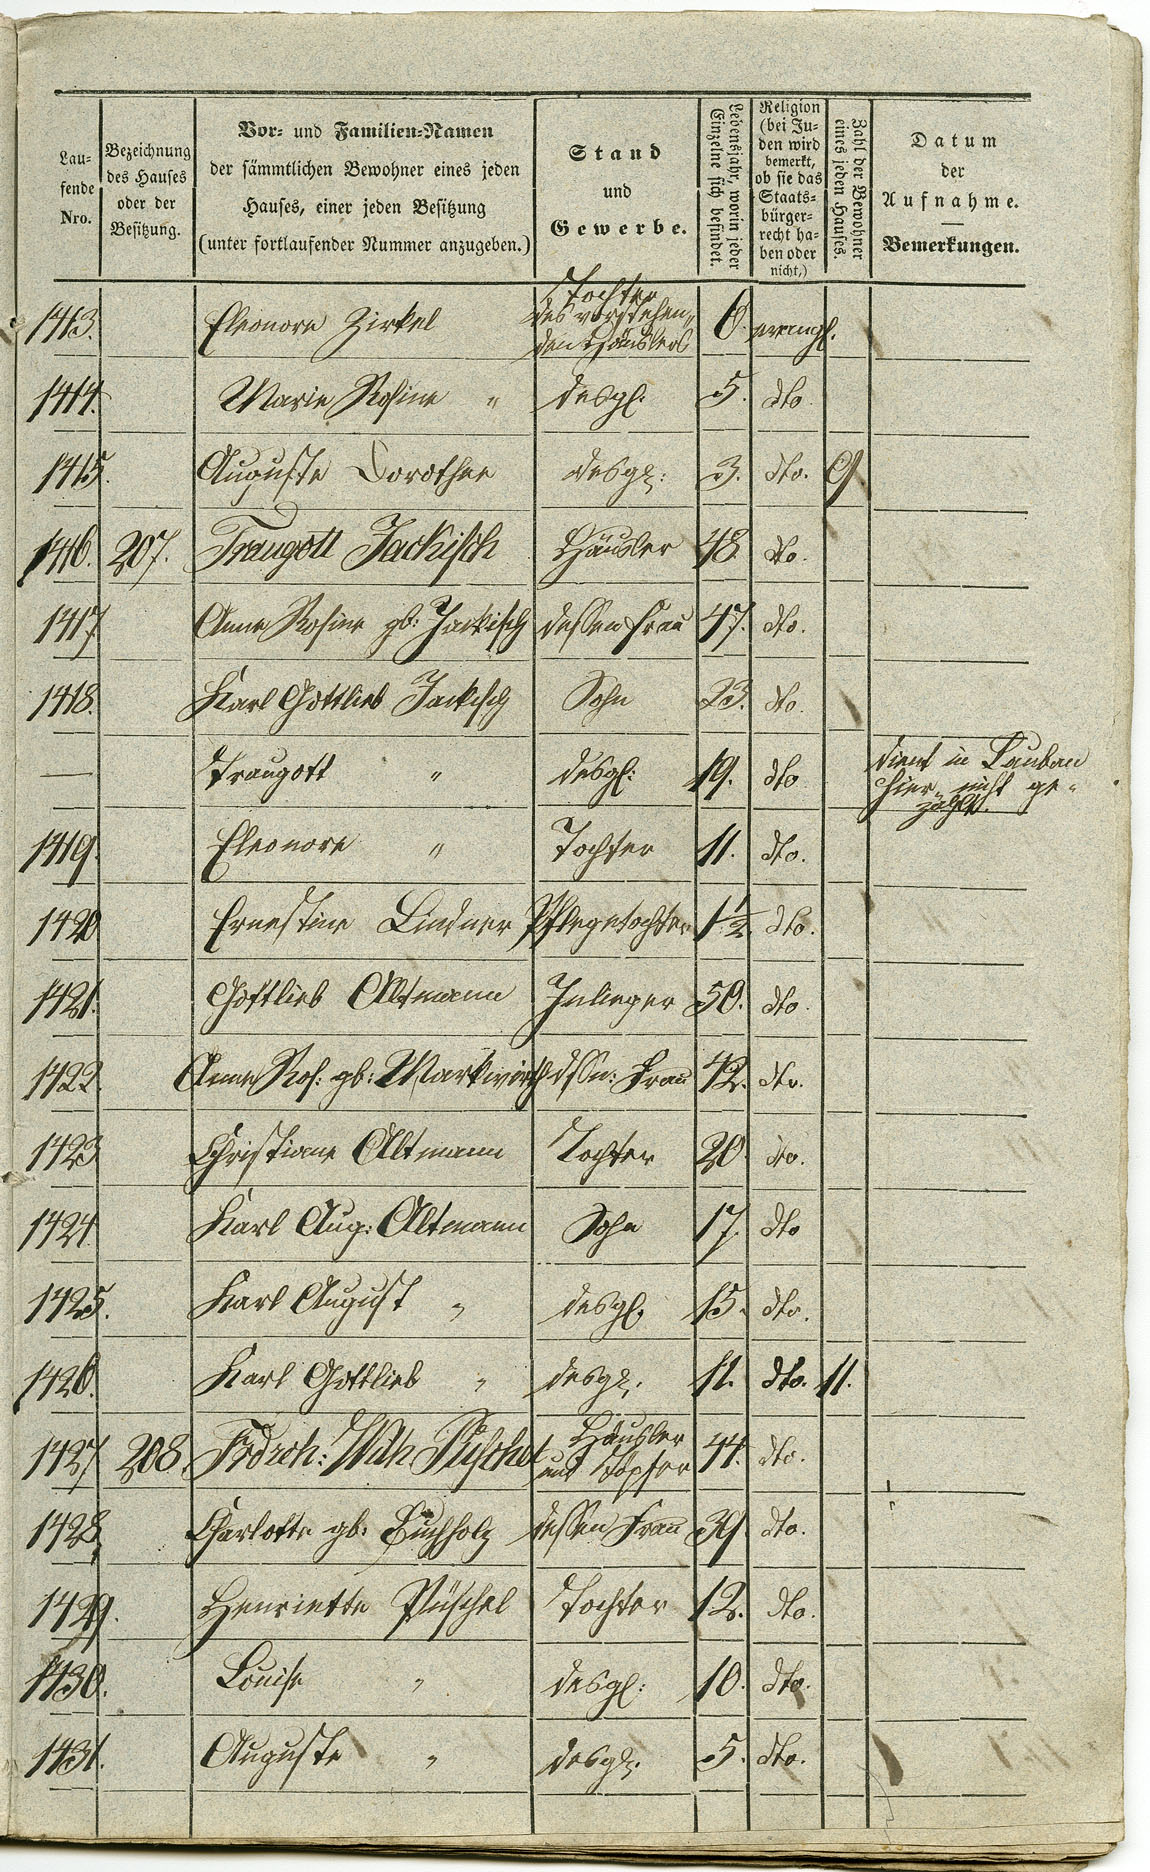 Lau-
fende
Nro.
Bezeichnung
des Hauses
oder der
Besitzung.
Vor- und Familien-Namen
der sämmtlichen Bewohner eines jeden
Hauses, einer jeden Besitzung
(unter fortlaufender Nummer anzugeben.)
Stand
und
Gewerbe.
Lebensjahr, worin jeder
Einzelne sich befindet.
Religion
(bei Ju-
den wird
bemerkt,
ob sie das
Staats-
bürger-
recht ha-
ben oder
nicht.)
Zahl der Bewohner
eines jeden Hauses.
Datum
der
Aufnahme.
Bemerkungen.
Tochter
des vorstehen-
1413. Eleonore Zirkel 6 evangl.
den Häuslers
1414. Marie Rosine " desgl. 5. dto
1415. Auguste Dorothee desgl: 3. dto. 9
1416. 207. Traugott Jackisch Häusler 48 dto.
1417 Anne Rosine gb: Jackisch dessen Frau 47. dto.
1418. Karl Gottlieb Jackisch Sohn 23. dto.
— Traugott " desgl: 19. dto dient in Lauban
hier nicht ge-
zählt.
1419. Eleonore " Tochter 11. dto.
1420 Ernestine Lindner Pflegetochter 1½. dto.
1421. Gottlieb Altmann Inlieger 50. dto.
1422. Anne Ros: gb: Markwirth dssn: Frau 42. dto.
1423 Christiane Altmann Tochter 20. dto.
1424. Karl Aug: Altmann Sohn 17. dto
1425. Karl August " desgl. 15. dto.
1426. Karl Gottlieb " desgl. 11. dto. 11.
Häusler
1427 208 Frdrch: Wilh Püschel 44. dto.
und Töpfer
1428, Charlotte gb: Buchholz dessen Frau 39. dto.
1429. Henriette Püschel Tochter 12. dto.
1430. Louise " desgl: 10. dto.
1431. Auguste " desgl. 5. dto.